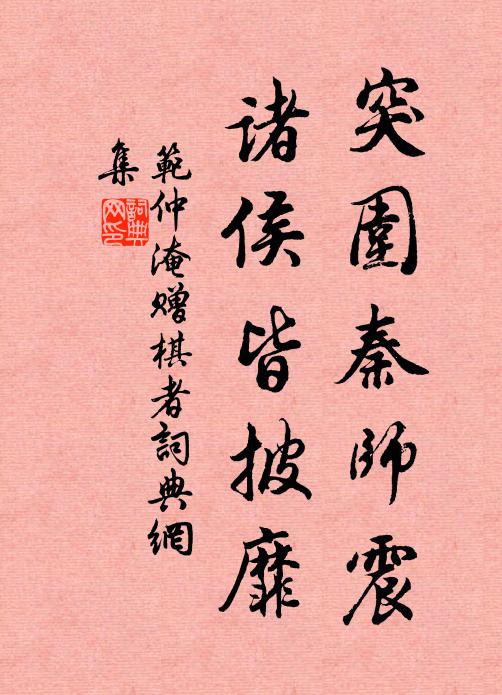 突圍秦師震
诸侯皆披靡
範仲淹赠棋者詞典網
集
詞典
网印